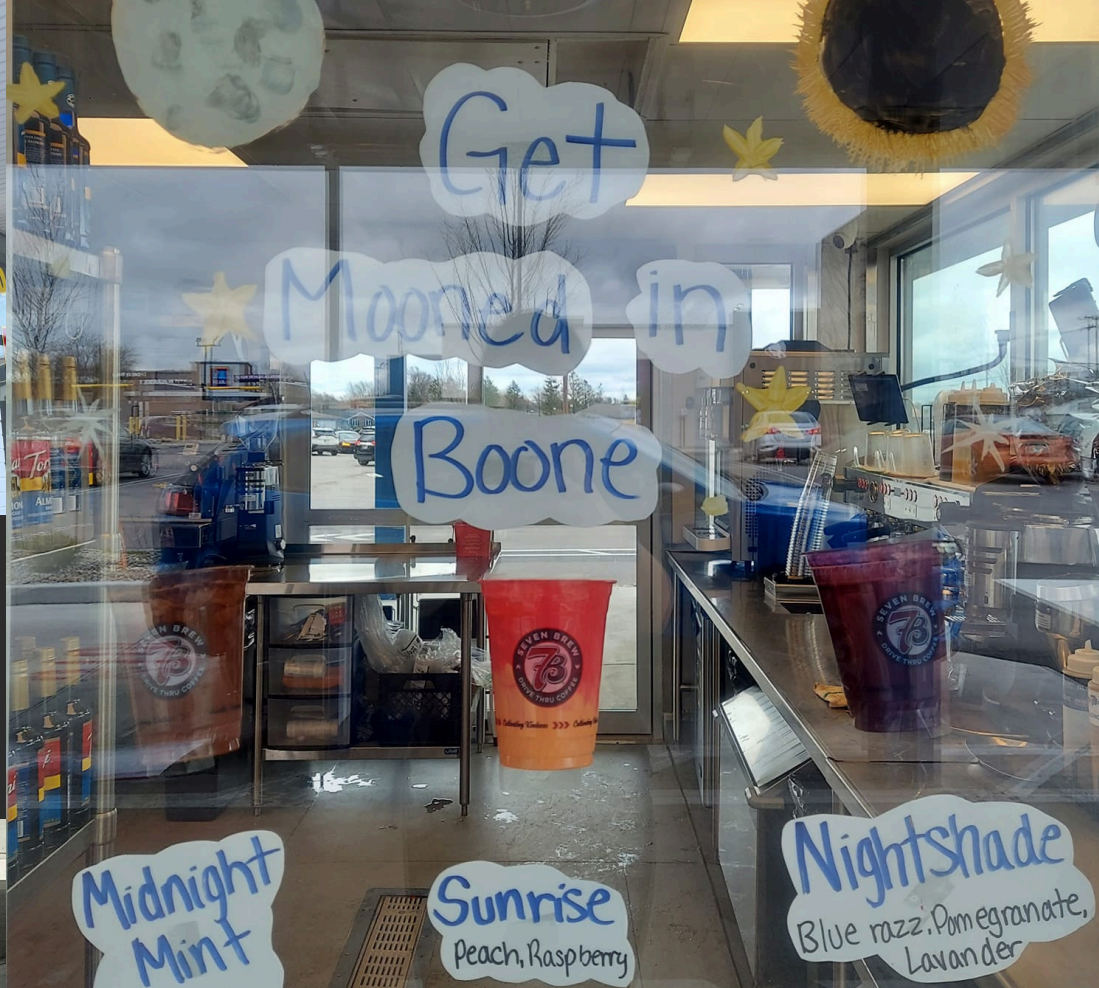 Get
Mooned in
Boone
SEVEN BREW
7B
DRIVE THRU COFFEE
SEVEN BREW
7B
DRIVE THRU COFFEE
Cultivating Kindness >>>
SEVEN BREW
7B
DRIVE THRU COFFEE
Midnight
Mint
Sunrise
Peach, Raspberry
Nightshade
Blue razz, Pomegranate,
Lavander